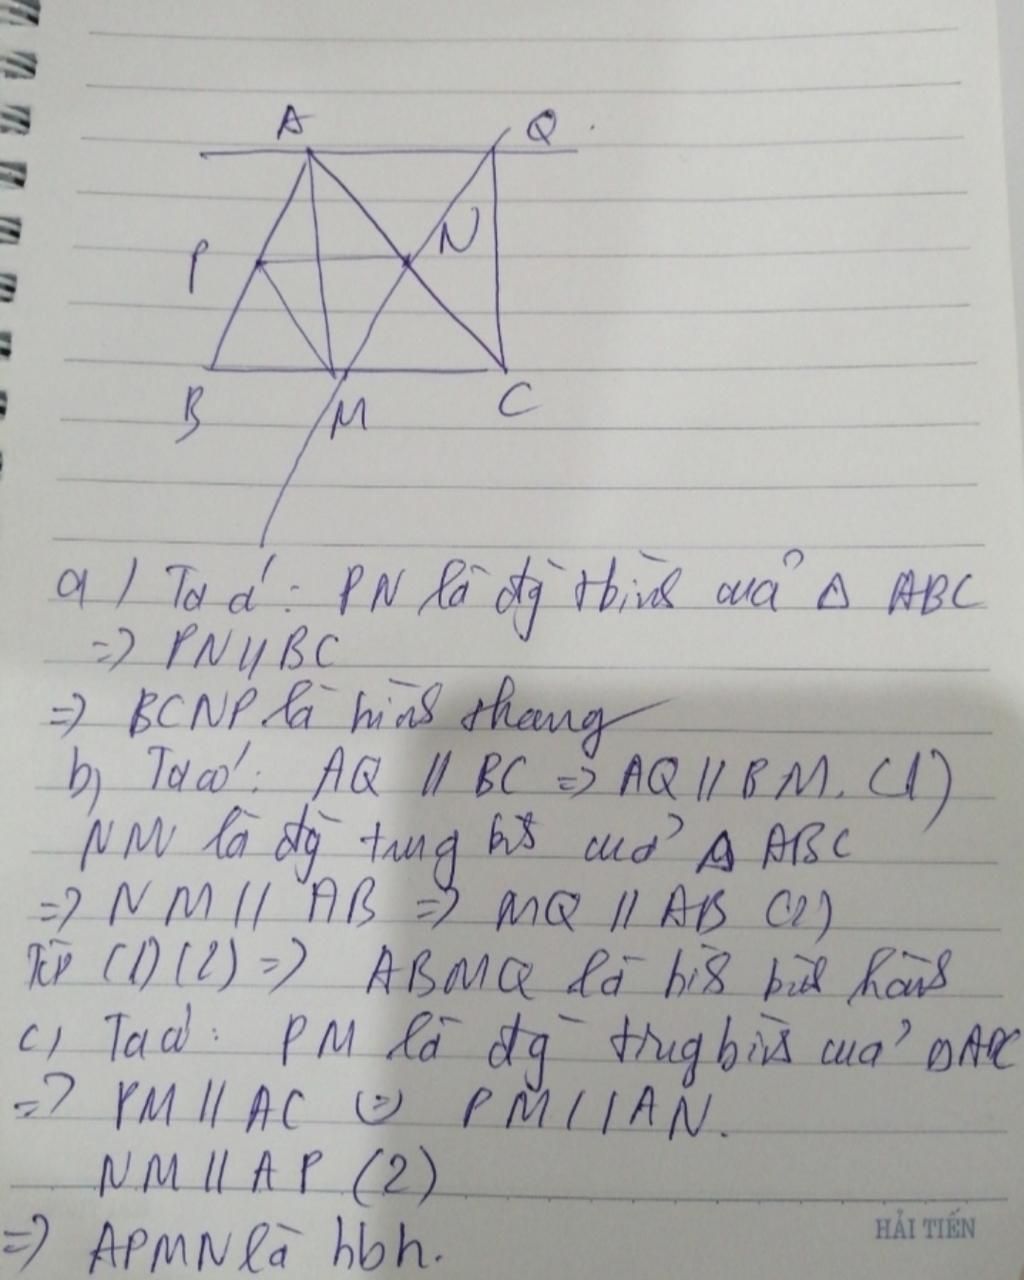 A
Q
P
N
B
M
C
a) Ta có: PN là đg tbình của △ ABC
=> PN // BC
=> BCNP là hình thang
b) Ta có: AQ // BC => AQ // BM. (1)
NM là đg trung bình của △ ABC
=> NM // AB => MQ // AB (2)
Từ (1) (2) => ABMQ là hình bình hành
c) Ta có: PM là đg trung bình của △ABC
=> PM // AC => PM // AN.
NM // AP (2)
=> APMN là hbh.
HẢI TIẾN